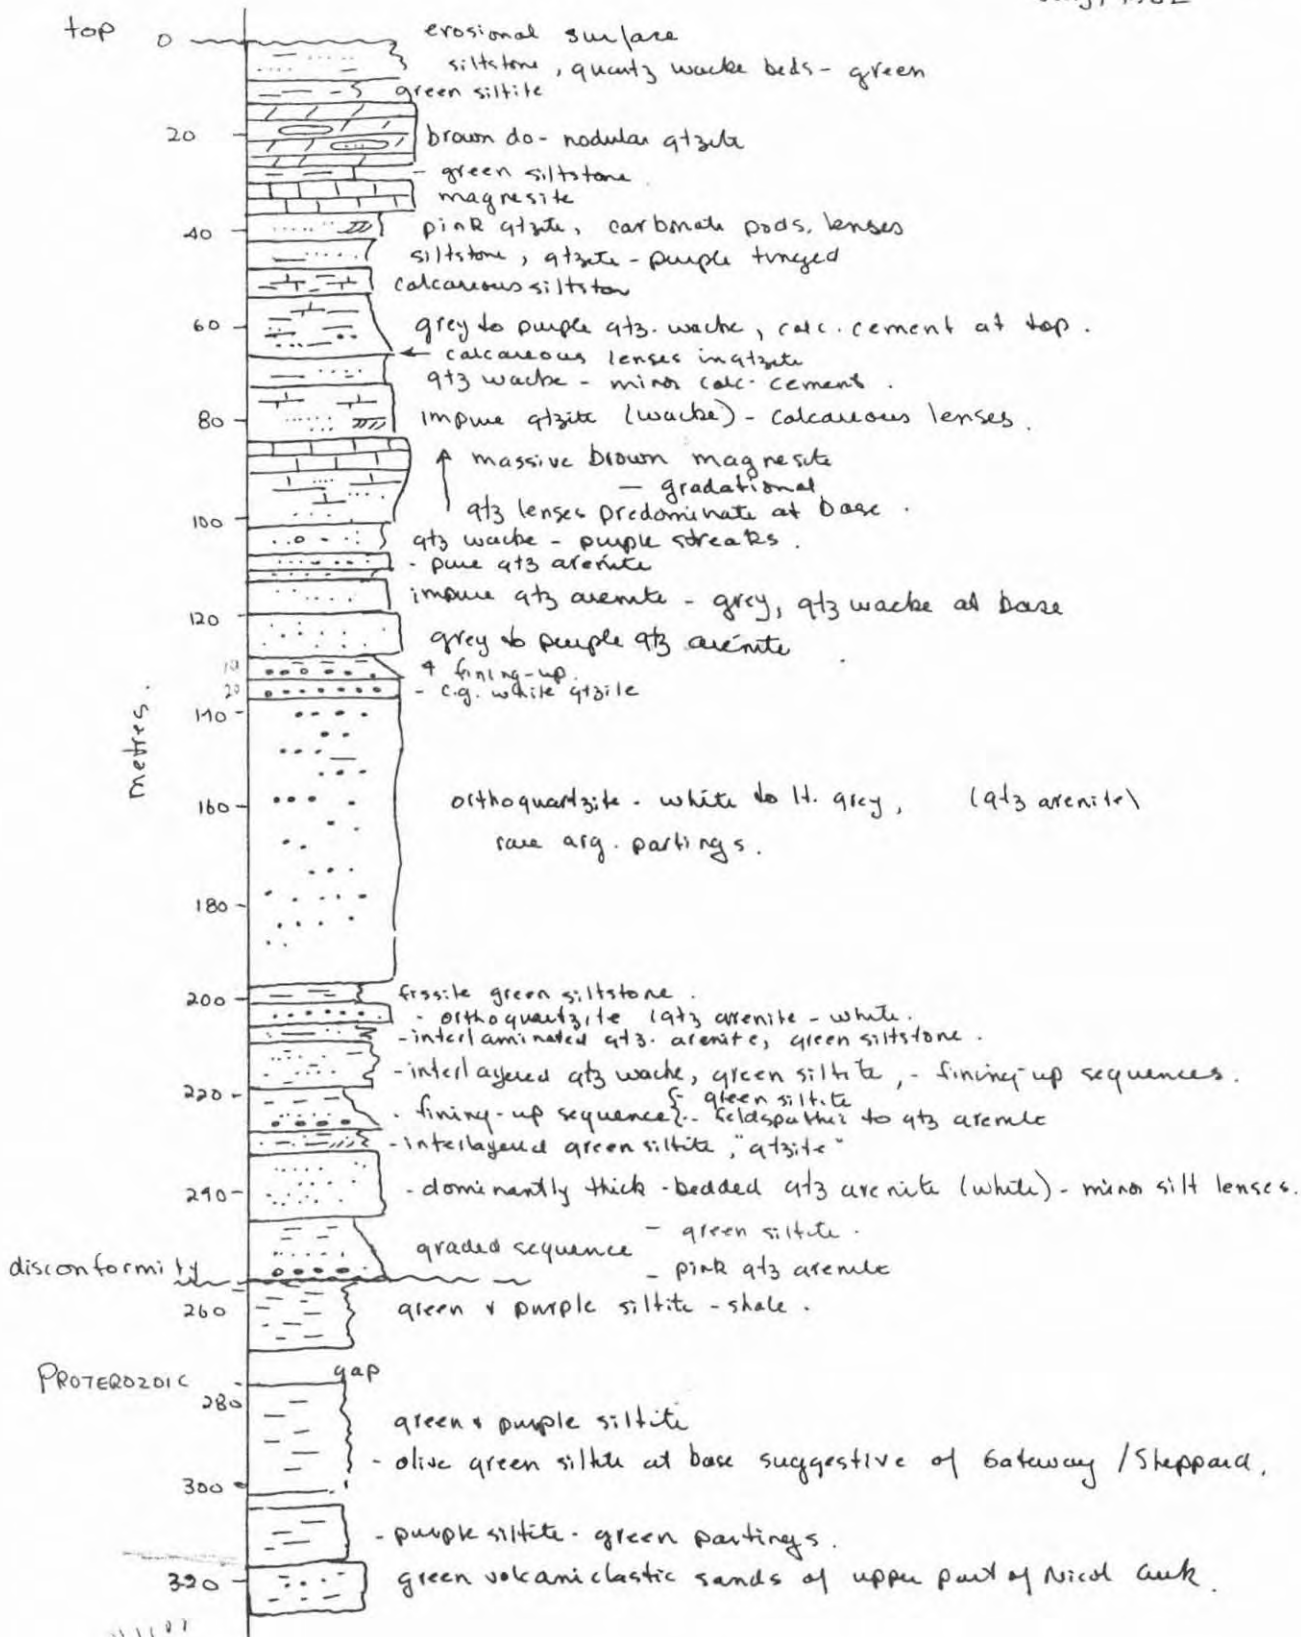 1982
top
0
erosional surface
siltstone, quartz wacke beds - green
green siltite
20
brown do - nodular qtzite
- green siltstone
magnesite
40
pink qtzite, carbonate pods, lenses
siltstone, qtzite - purple tinged
calcareous siltston
60
grey to purple qtz. wacke, calc. cement at top.
calcareous lenses in qtzite
qtz wacke - minor calc. cement.
80
impure qtzite (wacke) - calcareous lenses.
massive brown magnesite
- gradational
qtz lenses predominate at base.
100
qtz wacke - purple streaks.
- pure qtz arenite
impure qtz arenite - grey, qtz wacke at base
120
grey to purple qtz arenite
fining-up.
- c.g. white qtzite
140
metres.
160
orthoquartzite - white to lt. grey, (qtz arenite)
rare arg. partings.
180
200
fissile green siltstone.
- orthoquartzite (qtz arenite - white.
- interlaminated qtz. arenite, green siltstone.
- interlayered qtz wacke, green siltite, - fining-up sequences.
220
- green siltite
- fining-up sequence - feldspathic to qtz arenite
- interlayered green siltite, "qtzite"
240
- dominantly thick-bedded qtz arenite (white) - minor silt lenses.
- green siltite.
graded sequence
- pink qtz arenite
disconformity
260
green & purple siltite - shale.
gap
PROTEROZOIC
280
green & purple siltite
- olive green siltite at base suggestive of Gateway / Sheppard.
300
- purple siltite - green partings.
320
green volcaniclastic sands of upper part of Nicol Creek.